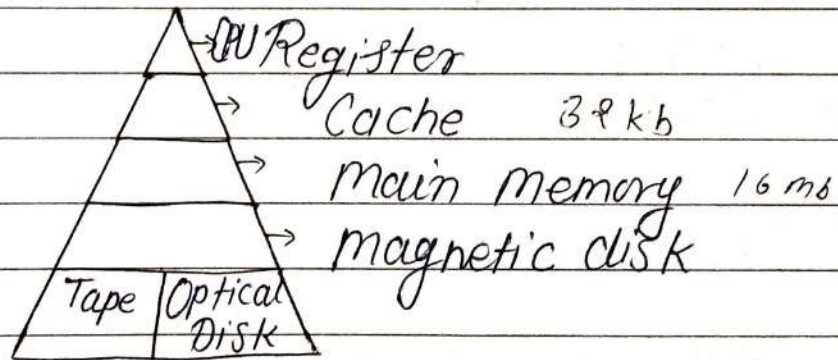 CPU Register
Cache 32 kb
Main memory 16 mb
Magnetic disk
Tape Optical
Disk